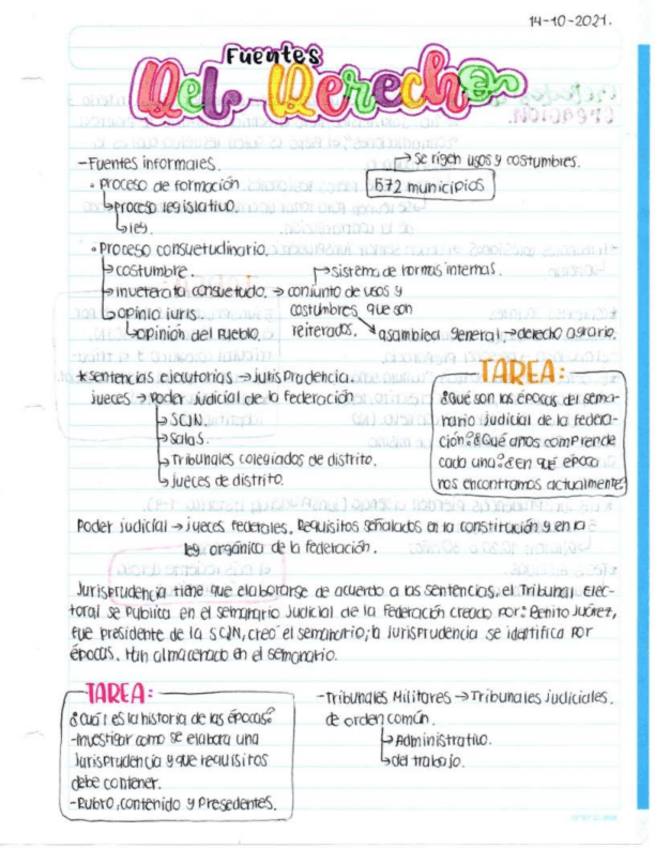 14-10-2021.
Fuentes
Del Derecho
-Fuentes informales.
→ se rigen usos y costumbres.
572 municipios
• Proceso de formación
↳proceso legislativo.
↳ley.
• Proceso consuetudinario.
↳costumbre.
↳inveterata consuetudo. → conjunto de usos y costumbres, que son reiterados.
→sistema de normas internas.
↳opinio iuris.
↳opinión del Pueblo.
asamblea general → derecho agrario.
*sentencias ejecutorias → jurisprudencia.
jueces → poder judicial de la federación
↳ SCJN.
↳ Salas.
↳ Tribunales colegiados de distrito.
↳ jueces de distrito.
TAREA:
¿Qué son las épocas del sema-
nario judicial de la federa-
ción? ¿Qué años comprende
cada una? ¿En qué época
nos encontramos actualmente?
Poder judicial → jueces federales. Requisitos señalados en la constitución y en la
ley orgánica de la federación.
Jurisprudencia tiene que elaborarse de acuerdo a las sentencias, el Tribunal Elec-
toral se publica en el semanario Judicial de la Federación creado por: Benito Juárez,
fue presidente de la SCJN, creo el semanario, la jurisprudencia se identifica por
épocas. Han almacenado en el semanario.
TAREA:
¿Cuál es la historia de las épocas?
-Investigar como se elabora una
Jurisprudencia y que requisitos
debe contener.
-Rubro, contenido y presedentes.
-Tribunales Militares → Tribunales judiciales.
de orden común.
↳ Administrativo.
↳ del trabajo.